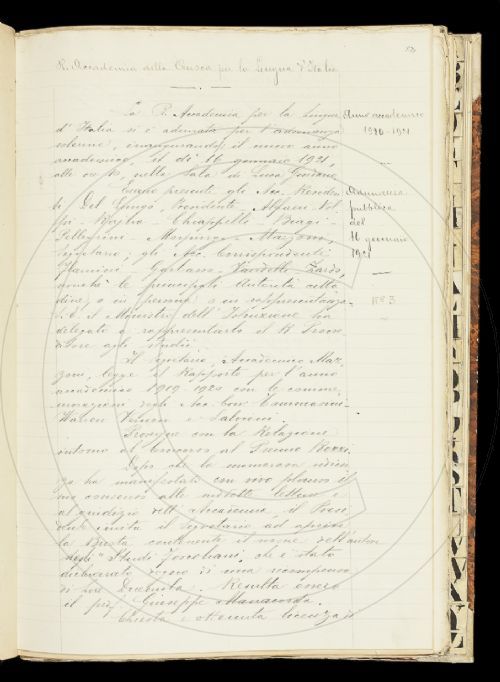 R. Accademia della Crusca per la Lingua d'Italia
La R. Accademia per la Lingua
d'Italia si è adunata per l'adunanza
solenne, inaugurandosi il nuovo anno
accademico, il dì 16 gennaio 1921,
alle ore, nella Sala di Luca Giordano
Erano presenti gli Acc. Residen
ti Del Lungo, Presidente, Alfani - Vol
pi - Rajna - Chiappelli - Biagi -
Pellegrini - Morpurgo - Mazzoni,
segretario; gli Acc. Corrispondenti
Flamini - Vandelli - Zardo,
nonché le principali Autorità citta
dine, o in persona o in rappresentanza
Il Ministro dell'Istruzione ha
delegato a rappresentarlo il R. Provve
ditore agli studii.
Il segretario, Accademico Maz
zoni, legge il Rapporto per l'anno
accademico 1919-1920 con le comme
morazioni degli Acc. Corr. Tommasini
e Salvioni.
Prosegue con la Relazione
intorno al Concorso al Premio Rezzi.
Dopo che la numerosa udien
za ha manifestato con vivo plauso il
suo consenso alle lettura e
al giudizio dell'Accademia, il Presi
dente invita il Segretario ad aprire
la busta contenente il nome dell'autore
degli "Studi Foscoliani", che è stato
dichiarato degno di una ricompensa
di lire Resulta essere
il prof. Giuseppe Manacorda.
Chiesta e ottenuta licenza di
Anno accademico
1920-1921
Adunanza
pubblica
del
16 gennaio
1921
N° 3